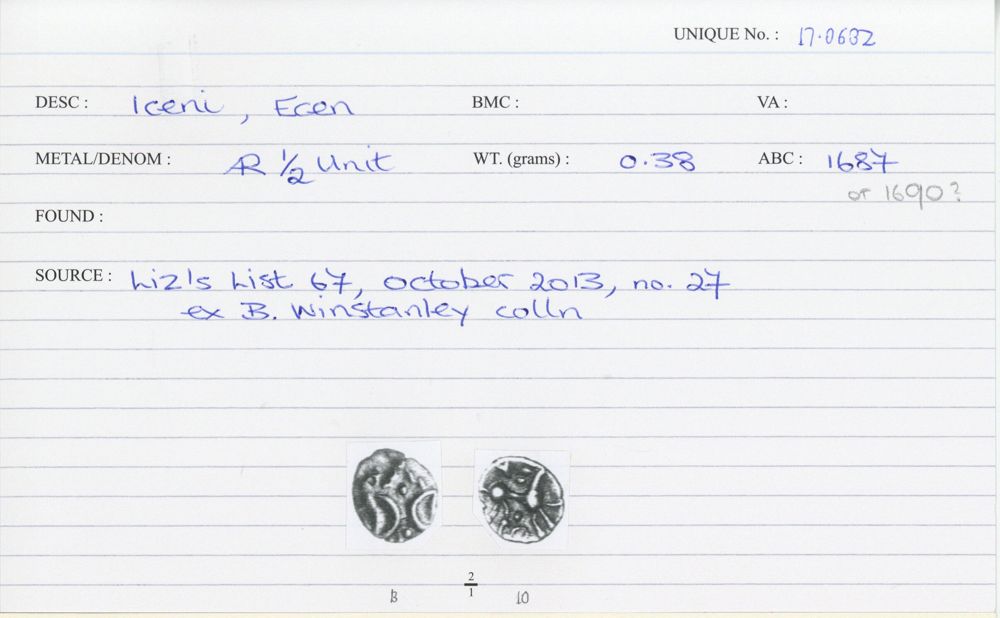 UNIQUE No. : 17.0632
DESC : Iceni, Ecen BMC : VA :
METAL/DENOM : AR 1/2 Unit WT. (grams) : 0.38 ABC : 1687
or 1690?
FOUND :
SOURCE : Liz's List 67, october 2013, no. 27
ex B. Winstanley colln
2/1
B 10